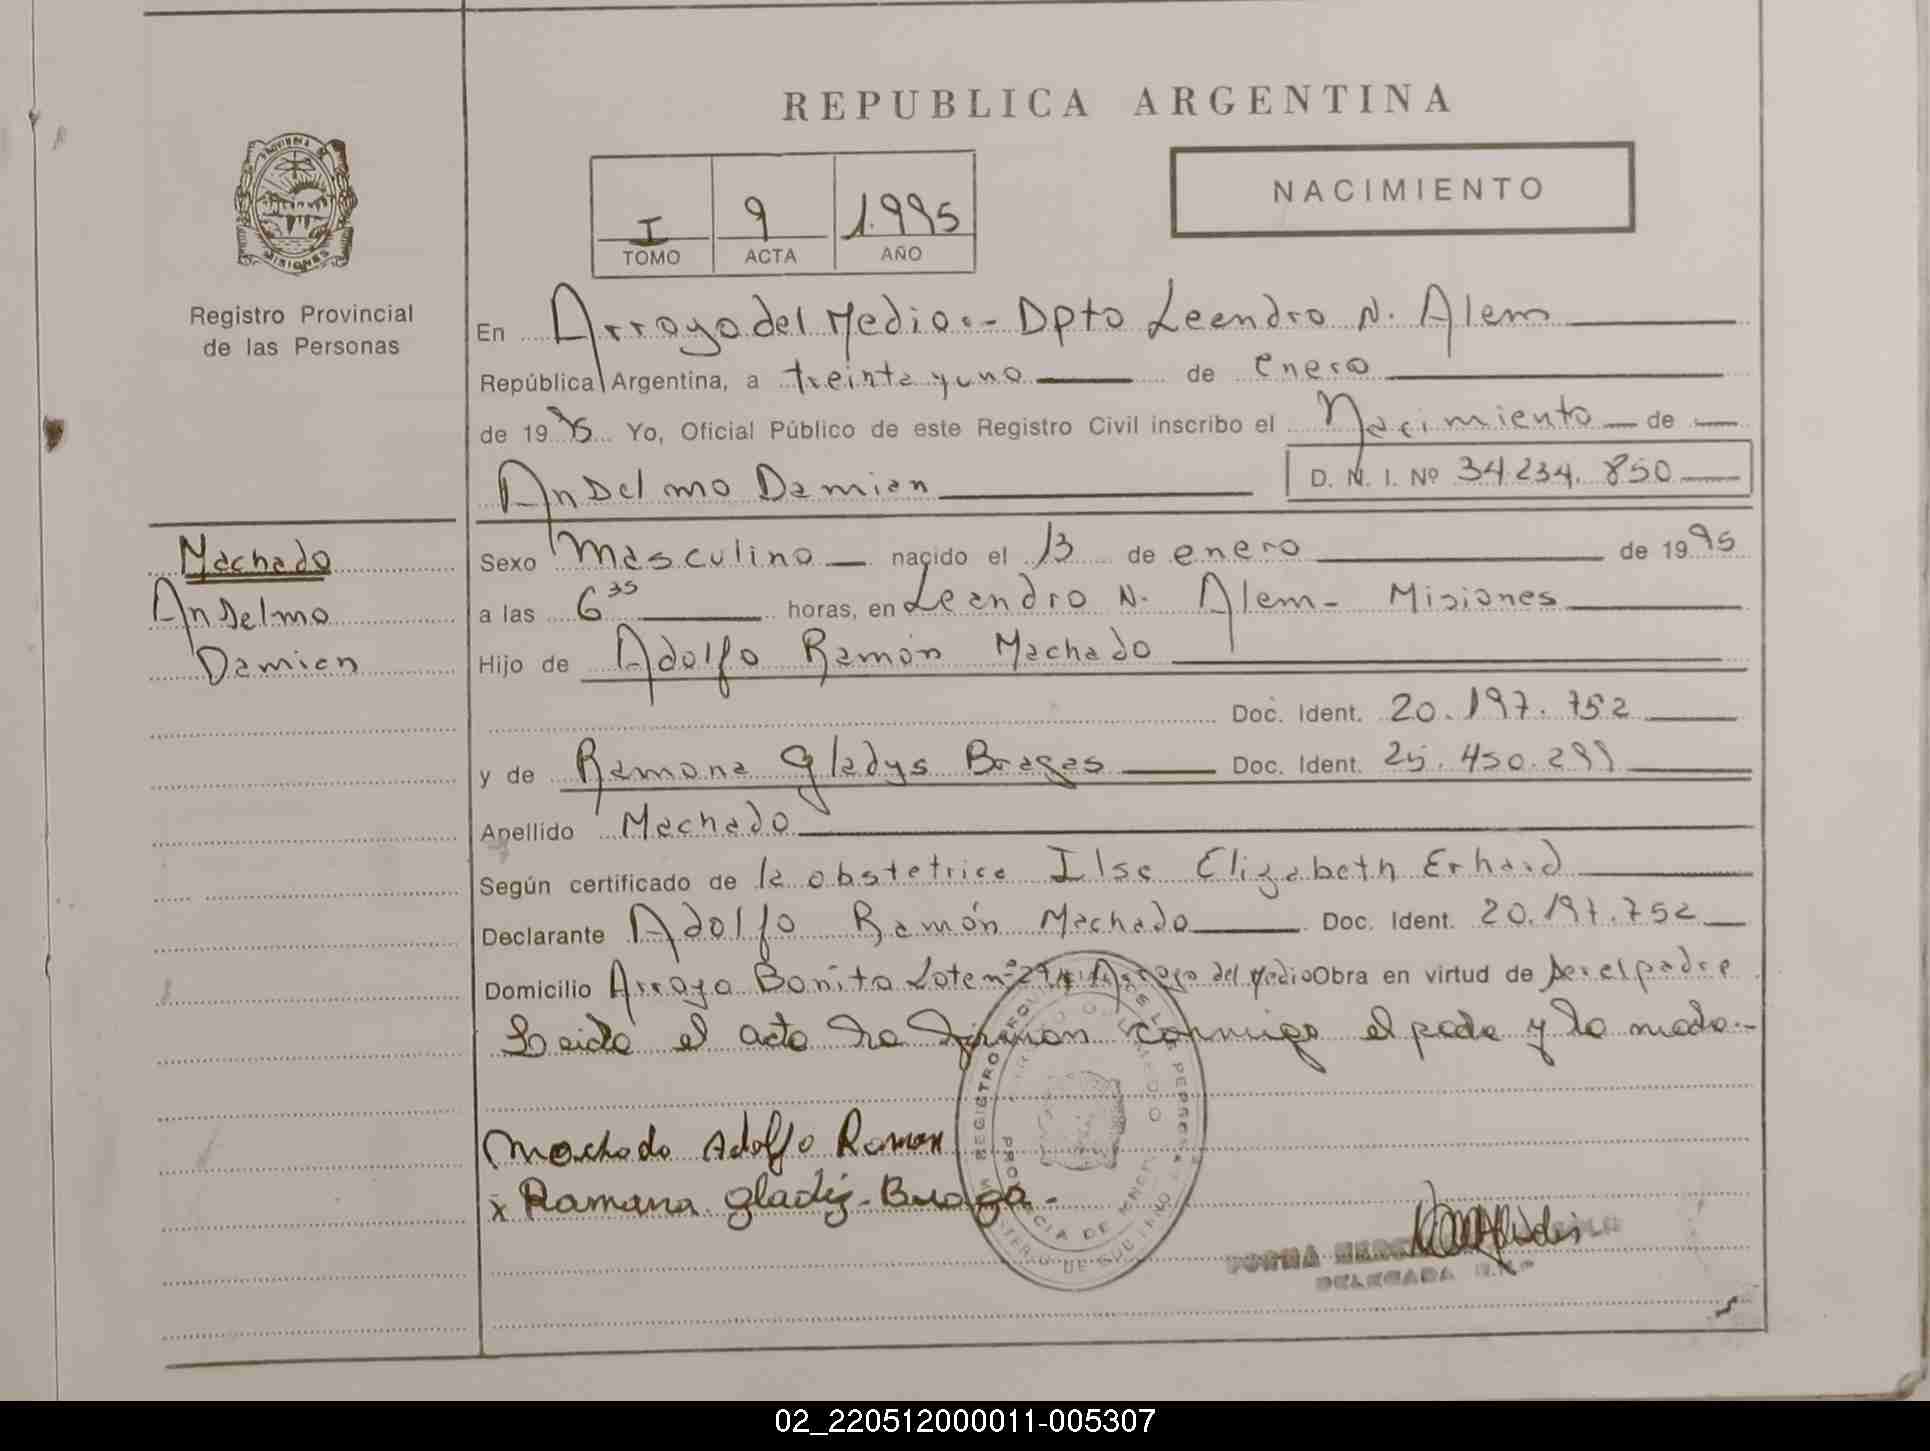 REPUBLICA ARGENTINA
PROVINCIA DE
MISIONES
Registro Provincial
de las Personas
I 9 1.995
TOMO ACTA AÑO
NACIMIENTO
En Arroyo del Medio.- Dpto Leandro N. Alem
República Argentina, a treinta y uno de enero
de 1995 Yo, Oficial Público de este Registro Civil inscribo el Nacimiento de
Andelmo Damian D. N. I. Nº 34.234.850
Machado
Andelmo
Damian
Sexo Masculino nacido el 13 de enero de 1995
a las 6 35 horas, en Leandro N. Alem - Misiones
Hijo de Adolfo Ramón Machado
Doc. Ident. 20.197.752
y de Ramona Gladys Bragas Doc. Ident. 25.450.299
Apellido Machado
Según certificado de la obstetrica Ilse Elizabeth Erhard
Declarante Adolfo Ramón Machado Doc. Ident. 20.197.752
Domicilio Arroyo Bonito Lote nº 29 Arroyo del Medio Obra en virtud de ser el padre
Leida el acta la firman conmigo el padre y la madre.-
Machado Adolfo Ramon
x Ramana gladis - Braga -
REGISTRO PROVINCIA DE
DELEGADA
02_220512000011-005307